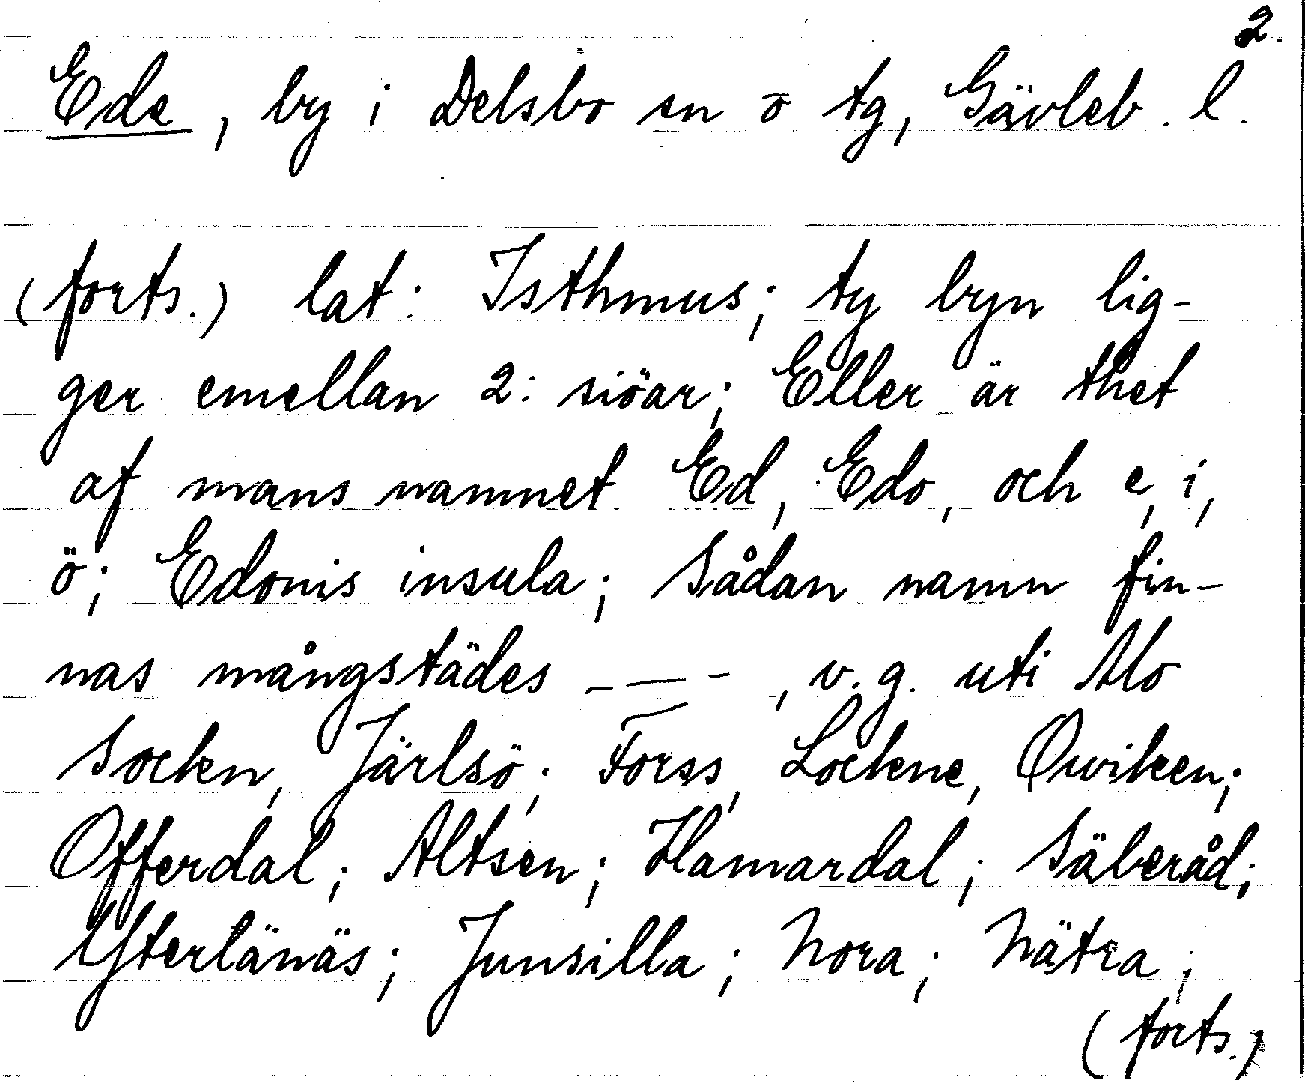 2.
Ede, by i Delsbo sn o tg, Gävleb. l.
(forts.) lat: Isthmus; ty byn lig-
ger emellan 2: siöar; Eller är thet
af mans namnet Ed, Edo, och e, i,
ö; Edonis insula; Sådan namn fin-
nas mångstädes — — -, v.g. uti Alo
Socken, Järlsö; Forss, Lockne, Qwiken;
Offerdal; Altsen; Hamardal; Säberåd;
Ytterlänäs; Junsilla; Nora; Nätra;
(forts.)